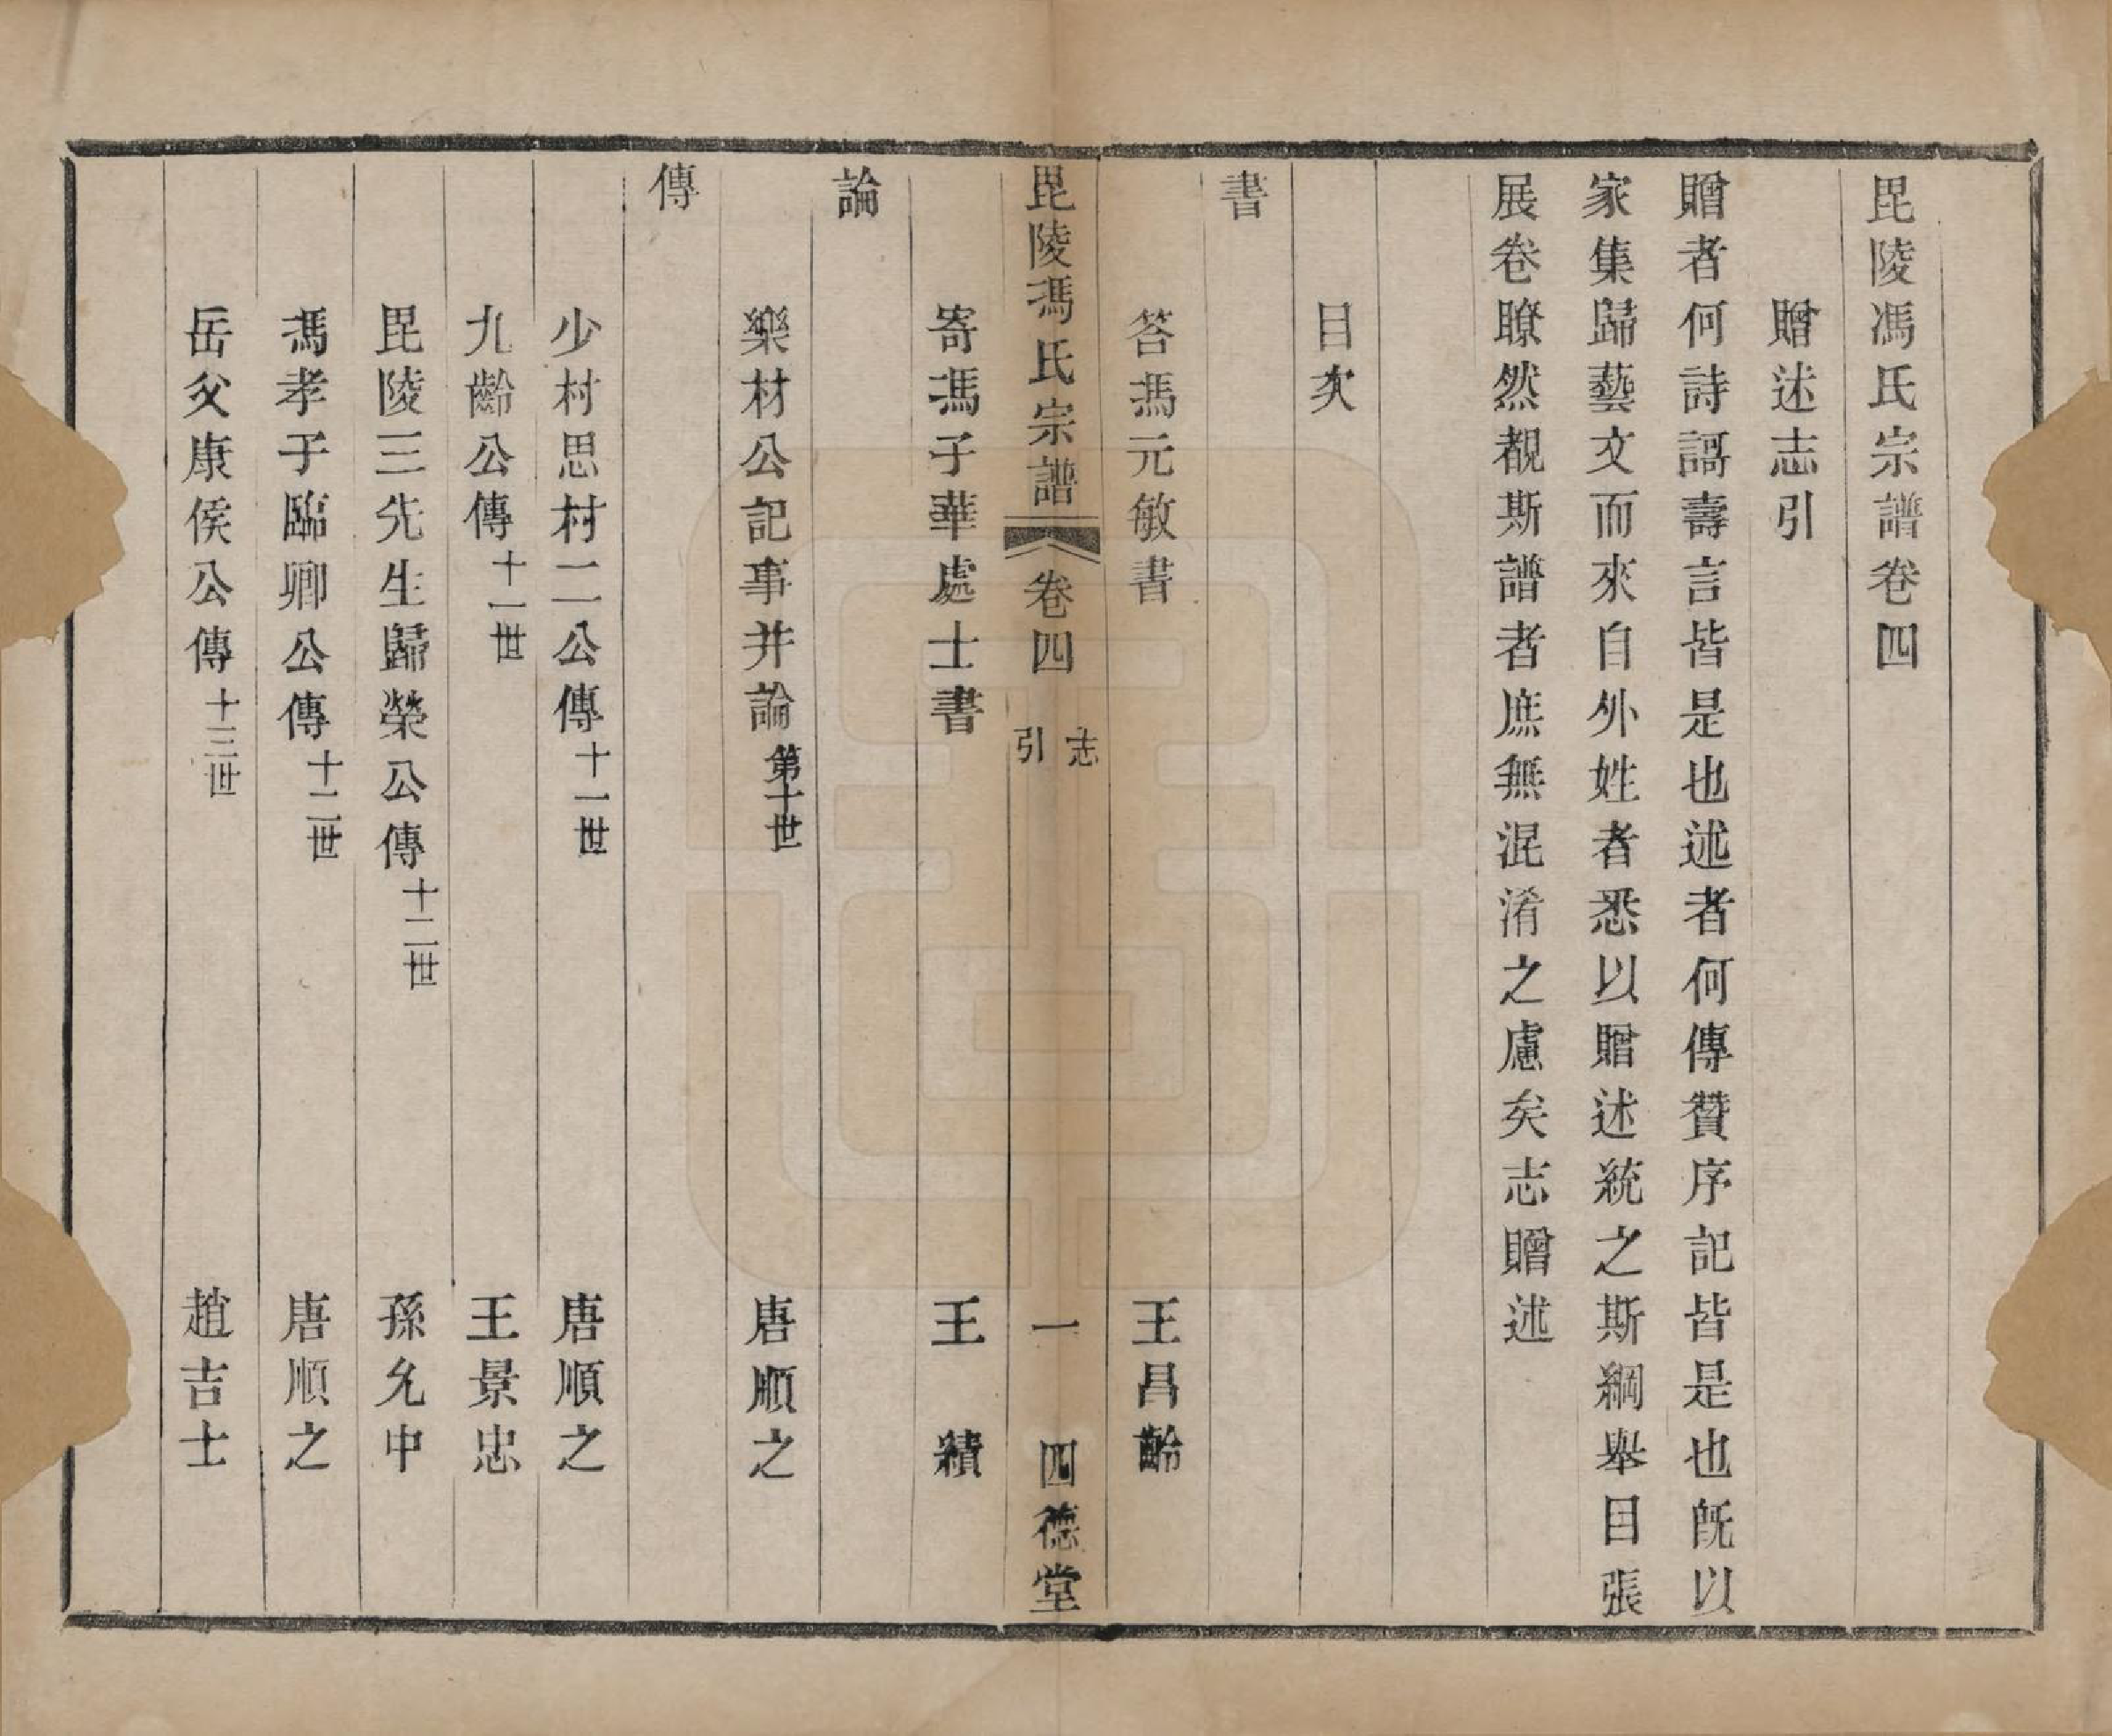 毘陵馮氏宗譜卷四
贈述志引
贈者何詩謌壽言皆是也述者何傳贊序記皆是也旣以
家集歸藝文而來自外姓者悉以贈述統之斯綱舉目張
展卷瞭然覩斯譜者庶無混淆之慮矣志贈述
目次
書
答馮元敏書 王昌齡
毘陵馮氏宗譜 卷四 志引 一 四德堂
寄馮子華處士書 王 績
論
樂材公記事并論 第十世 唐順之
傳
少村思村二公傳 十一世 唐順之
九齡公傳 十一世 王景忠
毘陵三先生歸榮公傳 十二世 孫允中
馮孝子臨卿公傳 十二世 唐順之
岳父康侯公傳 十三世 趙吉士